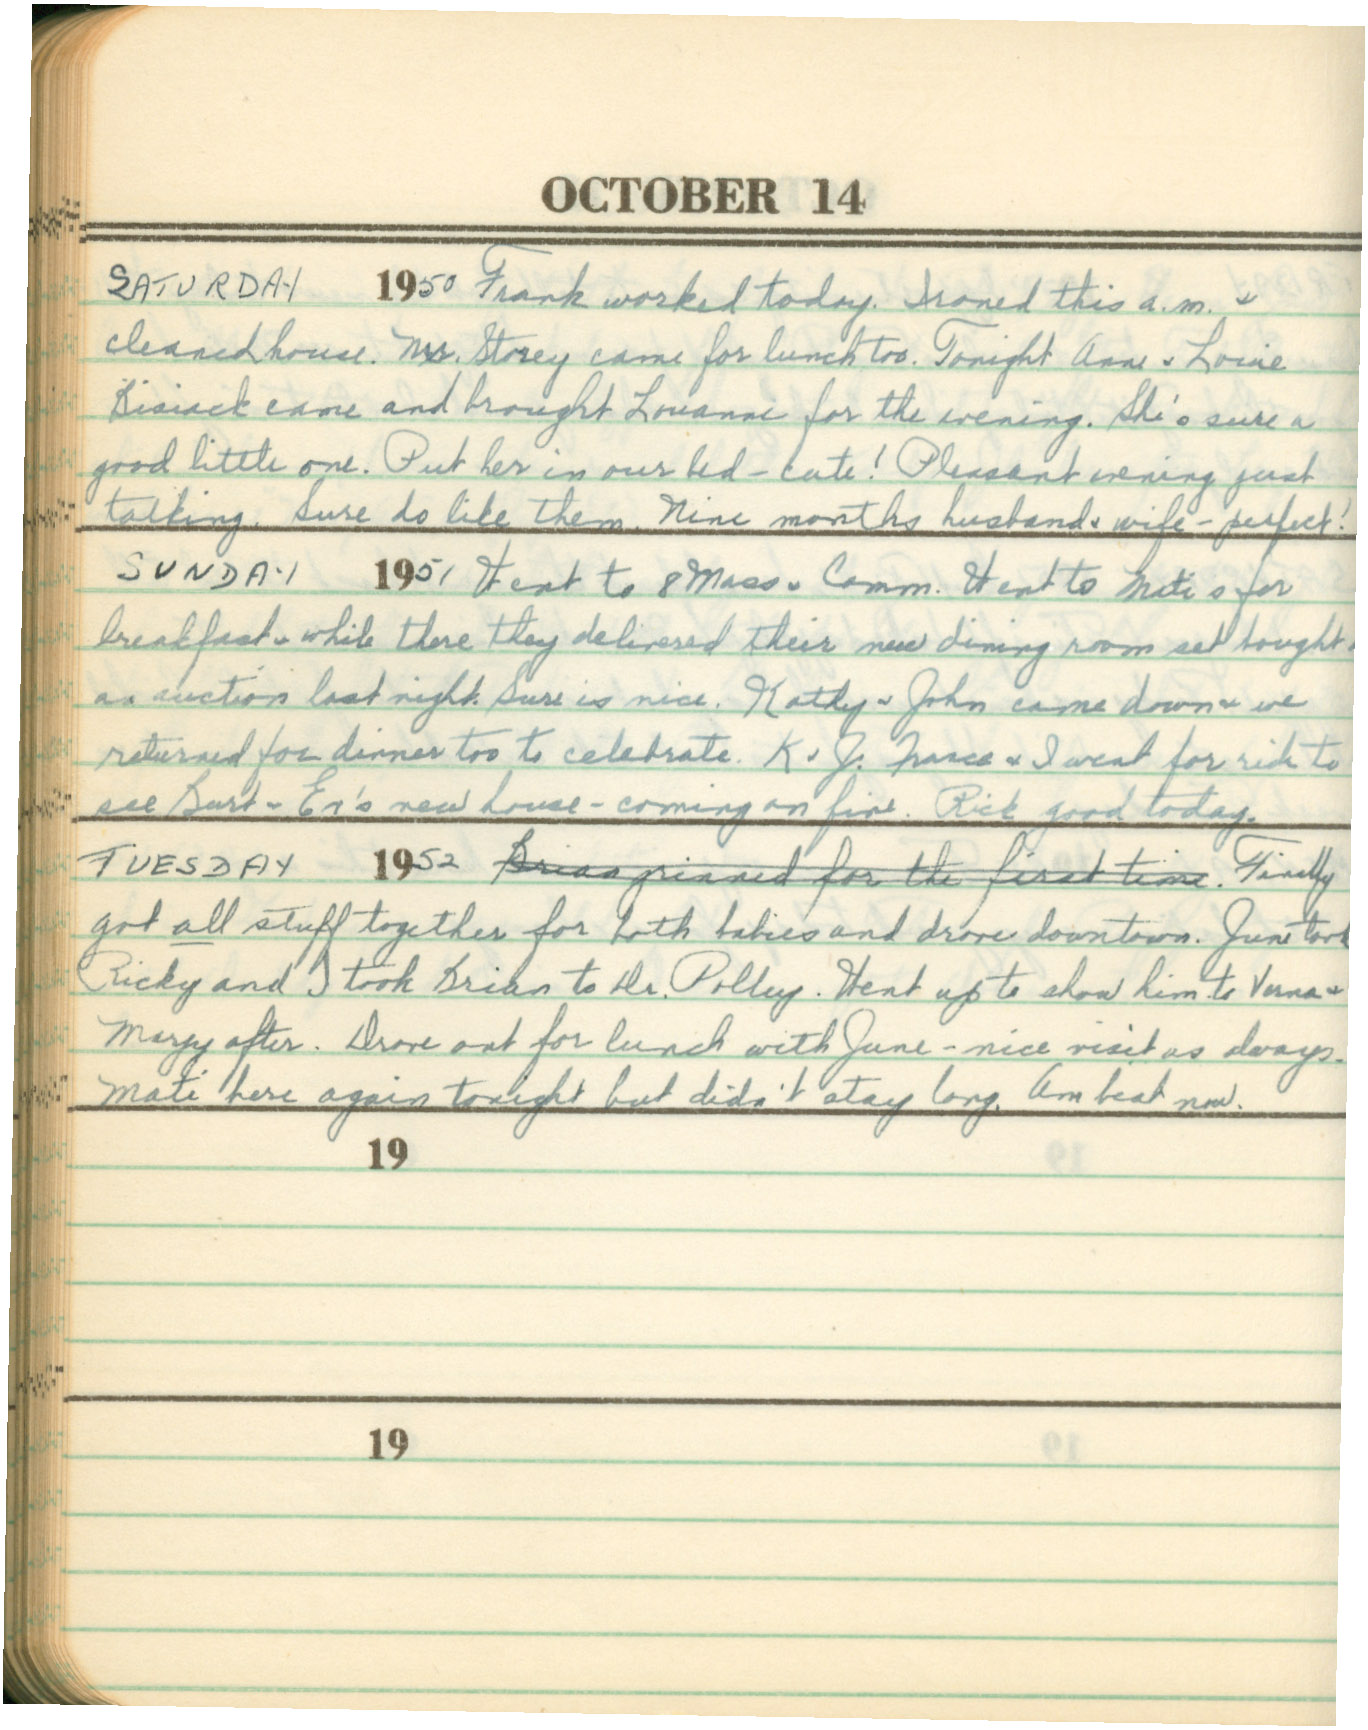 OCTOBER 14
SATURDAY 1950 Frank worked today. Ironed this a.m. &
cleaned house. Mr. Storey came for lunch too. Tonight Anne & Louie
Bisiack came and brought Louanne for the evening. She's sure a
good little one. Put her in our bed - cute! Pleasant evening just
talking. Sure do like them. Nine months husband & wife - perfect!
SUNDAY 1951 Went to 8 Mass & Comm. Went to Mati's for
breakfast & while there they delivered their new dining room set bought
an auction last night. Sure is nice. Kathy & John came down & we
returned for dinner too to celebrate. K & J. & I went for ride to
see Burt & Ev's new house - coming on fine. Rick good today.
TUESDAY 1952 Brian grinned for the first time. Finally
got all stuff together for both babies and drove downtown. June took
Ricky and I took Brian to Dr. Polley. Went up to show him to Verna &
Margy after. Drove out for lunch with June - nice visit as always.
Mati here again tonight but didn't stay long. Am beat now.
19
19